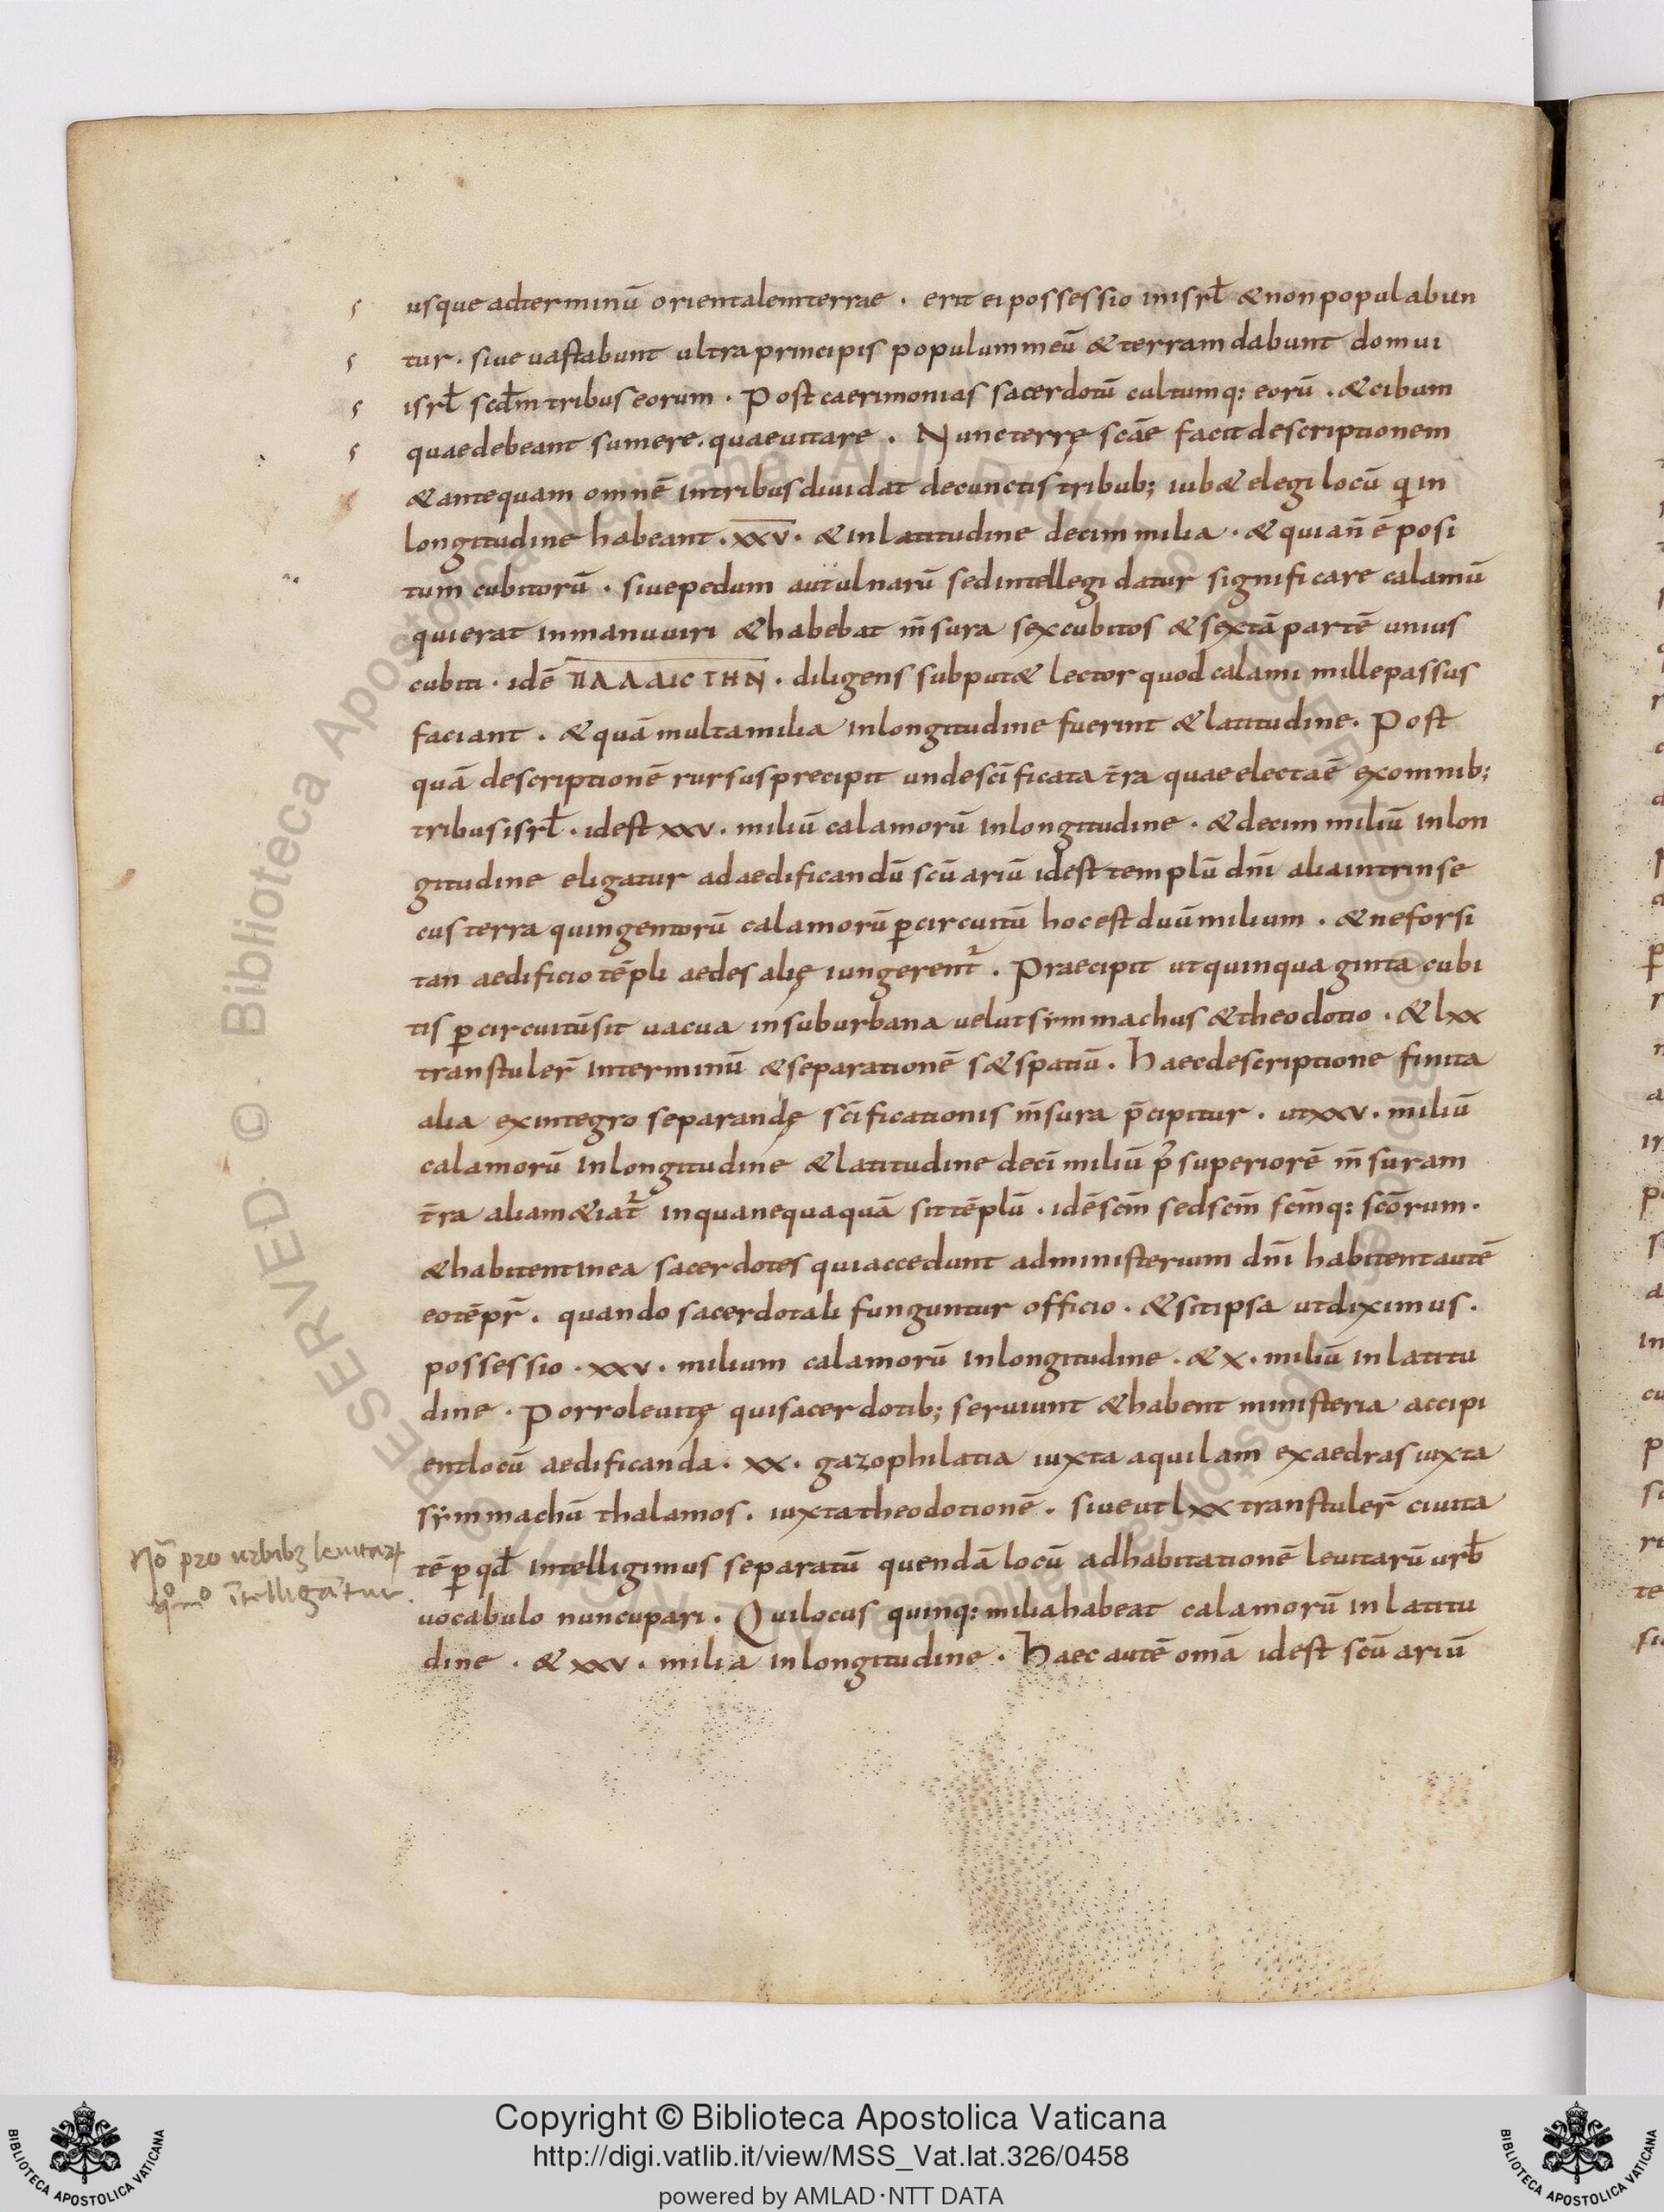 usque adterminū orientalemterrae . erit eipossessio inisrł &nonpopulabun
tur . siue uastabunt ultraprincipis populummeū &terramdabunt domui
isrł scdm̄tribuseorum . Post caerimonias sacerdotū cultumq: eorū . &cibum
quaedebeant sumere . quaeuitare . Nuncterrę scāe facit descriptionem
&antequam omnē intribusdiuidat decunctistribub; iub& elegi locū qi in
longitudine habeant . xxv . &inlatitudine decim milia . &quian̄ ē posi
tum cubitorū . siuepedum autulnarū sedintellegi datur significare calamū
quierat inmanuuiri &habebat m̄sura sexcubitos &sextāpartē unius
cubiti . idē ΠΑΛΑΙCΤΗΝ . diligens subput& lector quod calami millepassus
faciant . &quāmultamilia inlongitudine fuerint &latitudine . Post
quā descriptionē rursusprecipit undescīficata t̄ra quaeelectaē exomnib;
tribusisrł . idest xxv . miliū calamorū inlongitudine . &decim miliū inlon
gitudine eligatur adaedificandū scūariū idest templū dn̄i aliaintrinse
cus terra quingentorū calamorūp̱circuitū hocest duūmilium . &neforsi
tan aedificiotēpli aedes alię iungerent̄ . Praecipit utquinquaginta cubi
tis p̱circuitūsit uacua insuburbana uelutsẏmmachus &theodotio . &lxx
transtuler̄ interminū &separationē s&spatiū . Haecdescriptione finita
alia exintegro separandę scīficationis m̄sura p̄cipitur . utxxv . miliū
calamorū inlongitudine &latitudine decī miliū p̄ superiorē m̄suram
t̄ra aliam&iat̄ inquanequaquā sittēplū . idēscm̄ sedscm̄ scm̄q: scōrum .
&habitentinea sacerdotes quiaccedunt administerium dn̄i habitentautē
eotēpr̄ . quando sacerdotali funguntur officio . &sitipsa utdiximus .
possessio . xxv . milium calamorū inlongitudine . &x . miliū inlatitu
dine . Porroleuitę quisacerdotib; seruiunt &habent ministeria accipi
entlocū aedificanda . xx . gazophilatia iuxta aquilam exaedras iuxta
sẏmmachū thalamos . iuxtatheodotionē . siueutlxx transtuler̄ ciuita
tē p̱qđ intelligimus separatū quendā locū adhabitationē leuitarū urƀ
uocabulo nuncupari . Quilocus quinq: miliahabeat calamorū inlatitu
dine . &xxv . milia inlongitudine . Haec autē omā idest scūariū
Nō pro urbibꝫ leuitaꝝ
qºmº ītelligātur
© Biblioteca Apostolica Vaticana. ALL RIGHTS RESERVED.
Copyright © Biblioteca Apostolica Vaticana
http://digi.vatlib.it/view/MSS_Vat.lat.326/0458
powered by AMLAD·NTT DATA
BIBLIOTECA APOSTOLICA VATICANA
BIBLIOTECA APOSTOLICA VATICANA